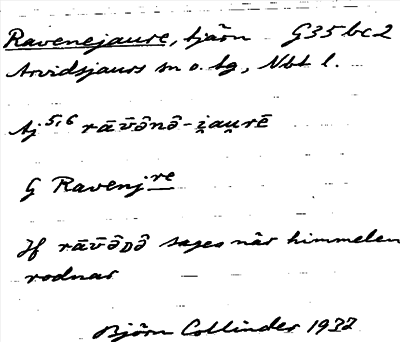 Ravenejaure, tjärn G35 bc2
Arvidsjaurs sn o. tg, Nbt l.
Aj 5,6 rāv̄ônô-i̯au̯rē
G Ravenjre
Jf rāv̄ôDô sages när himmelen
rodnar
Björn Collinder 1932